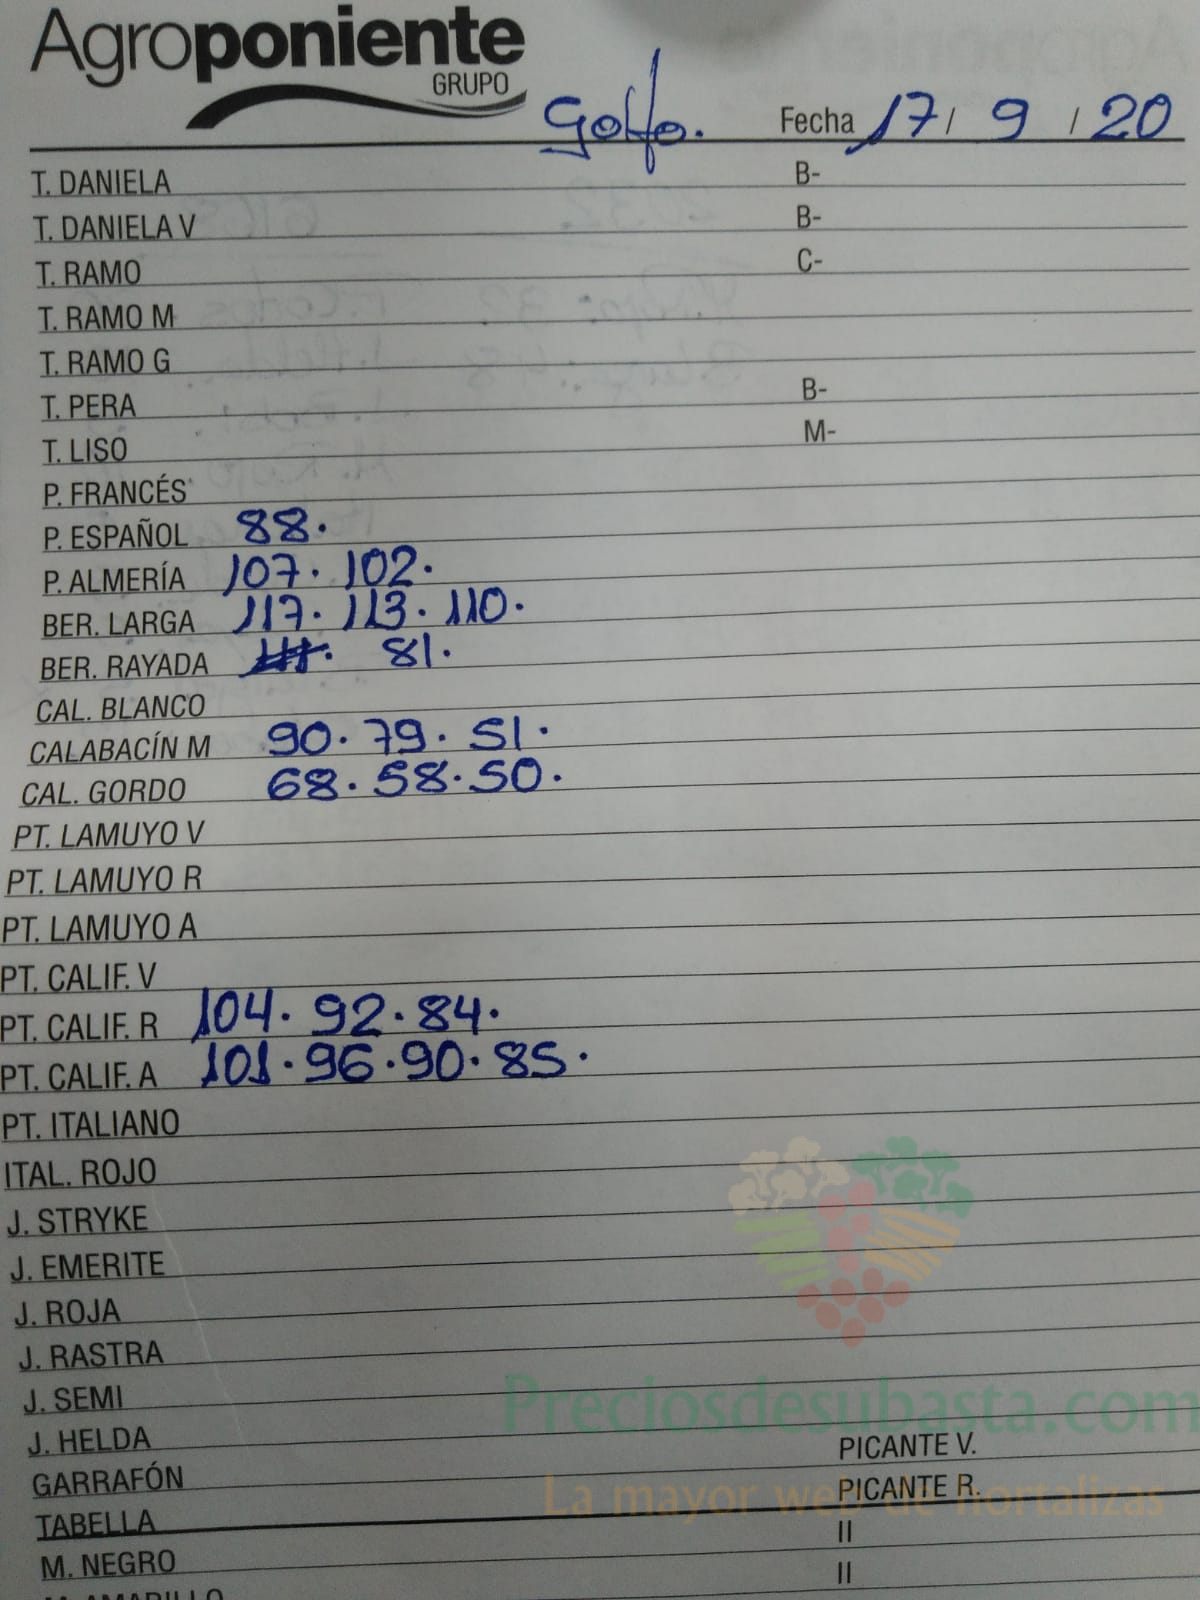 Agroponiente
GRUPO
Golfo. Fecha 17 / 9 / 20
T. DANIELA B-
T. DANIELA V B-
T. RAMO C-
T. RAMO M
T. RAMO G
T. PERA B-
T. LISO M-
P. FRANCÉS
P. ESPAÑOL 88.
P. ALMERÍA 107. 102.
BER. LARGA 117. 113. 110.
BER. RAYADA 81.
CAL. BLANCO
CALABACÍN M 90. 79. 51.
CAL. GORDO 68. 58. 50.
PT. LAMUYO V
PT. LAMUYO R
PT. LAMUYO A
PT. CALIF. V
PT. CALIF. R 104. 92. 84.
PT. CALIF. A 101. 96. 90. 85.
PT. ITALIANO
ITAL. ROJO
J. STRYKE
J. EMERITE
J. ROJA
J. RASTRA
J. SEMI
Preciosdesubasta.com
J. HELDA PICANTE V.
GARRAFÓN PICANTE R.
La mayor web de hortalizas
TABELLA II
M. NEGRO II